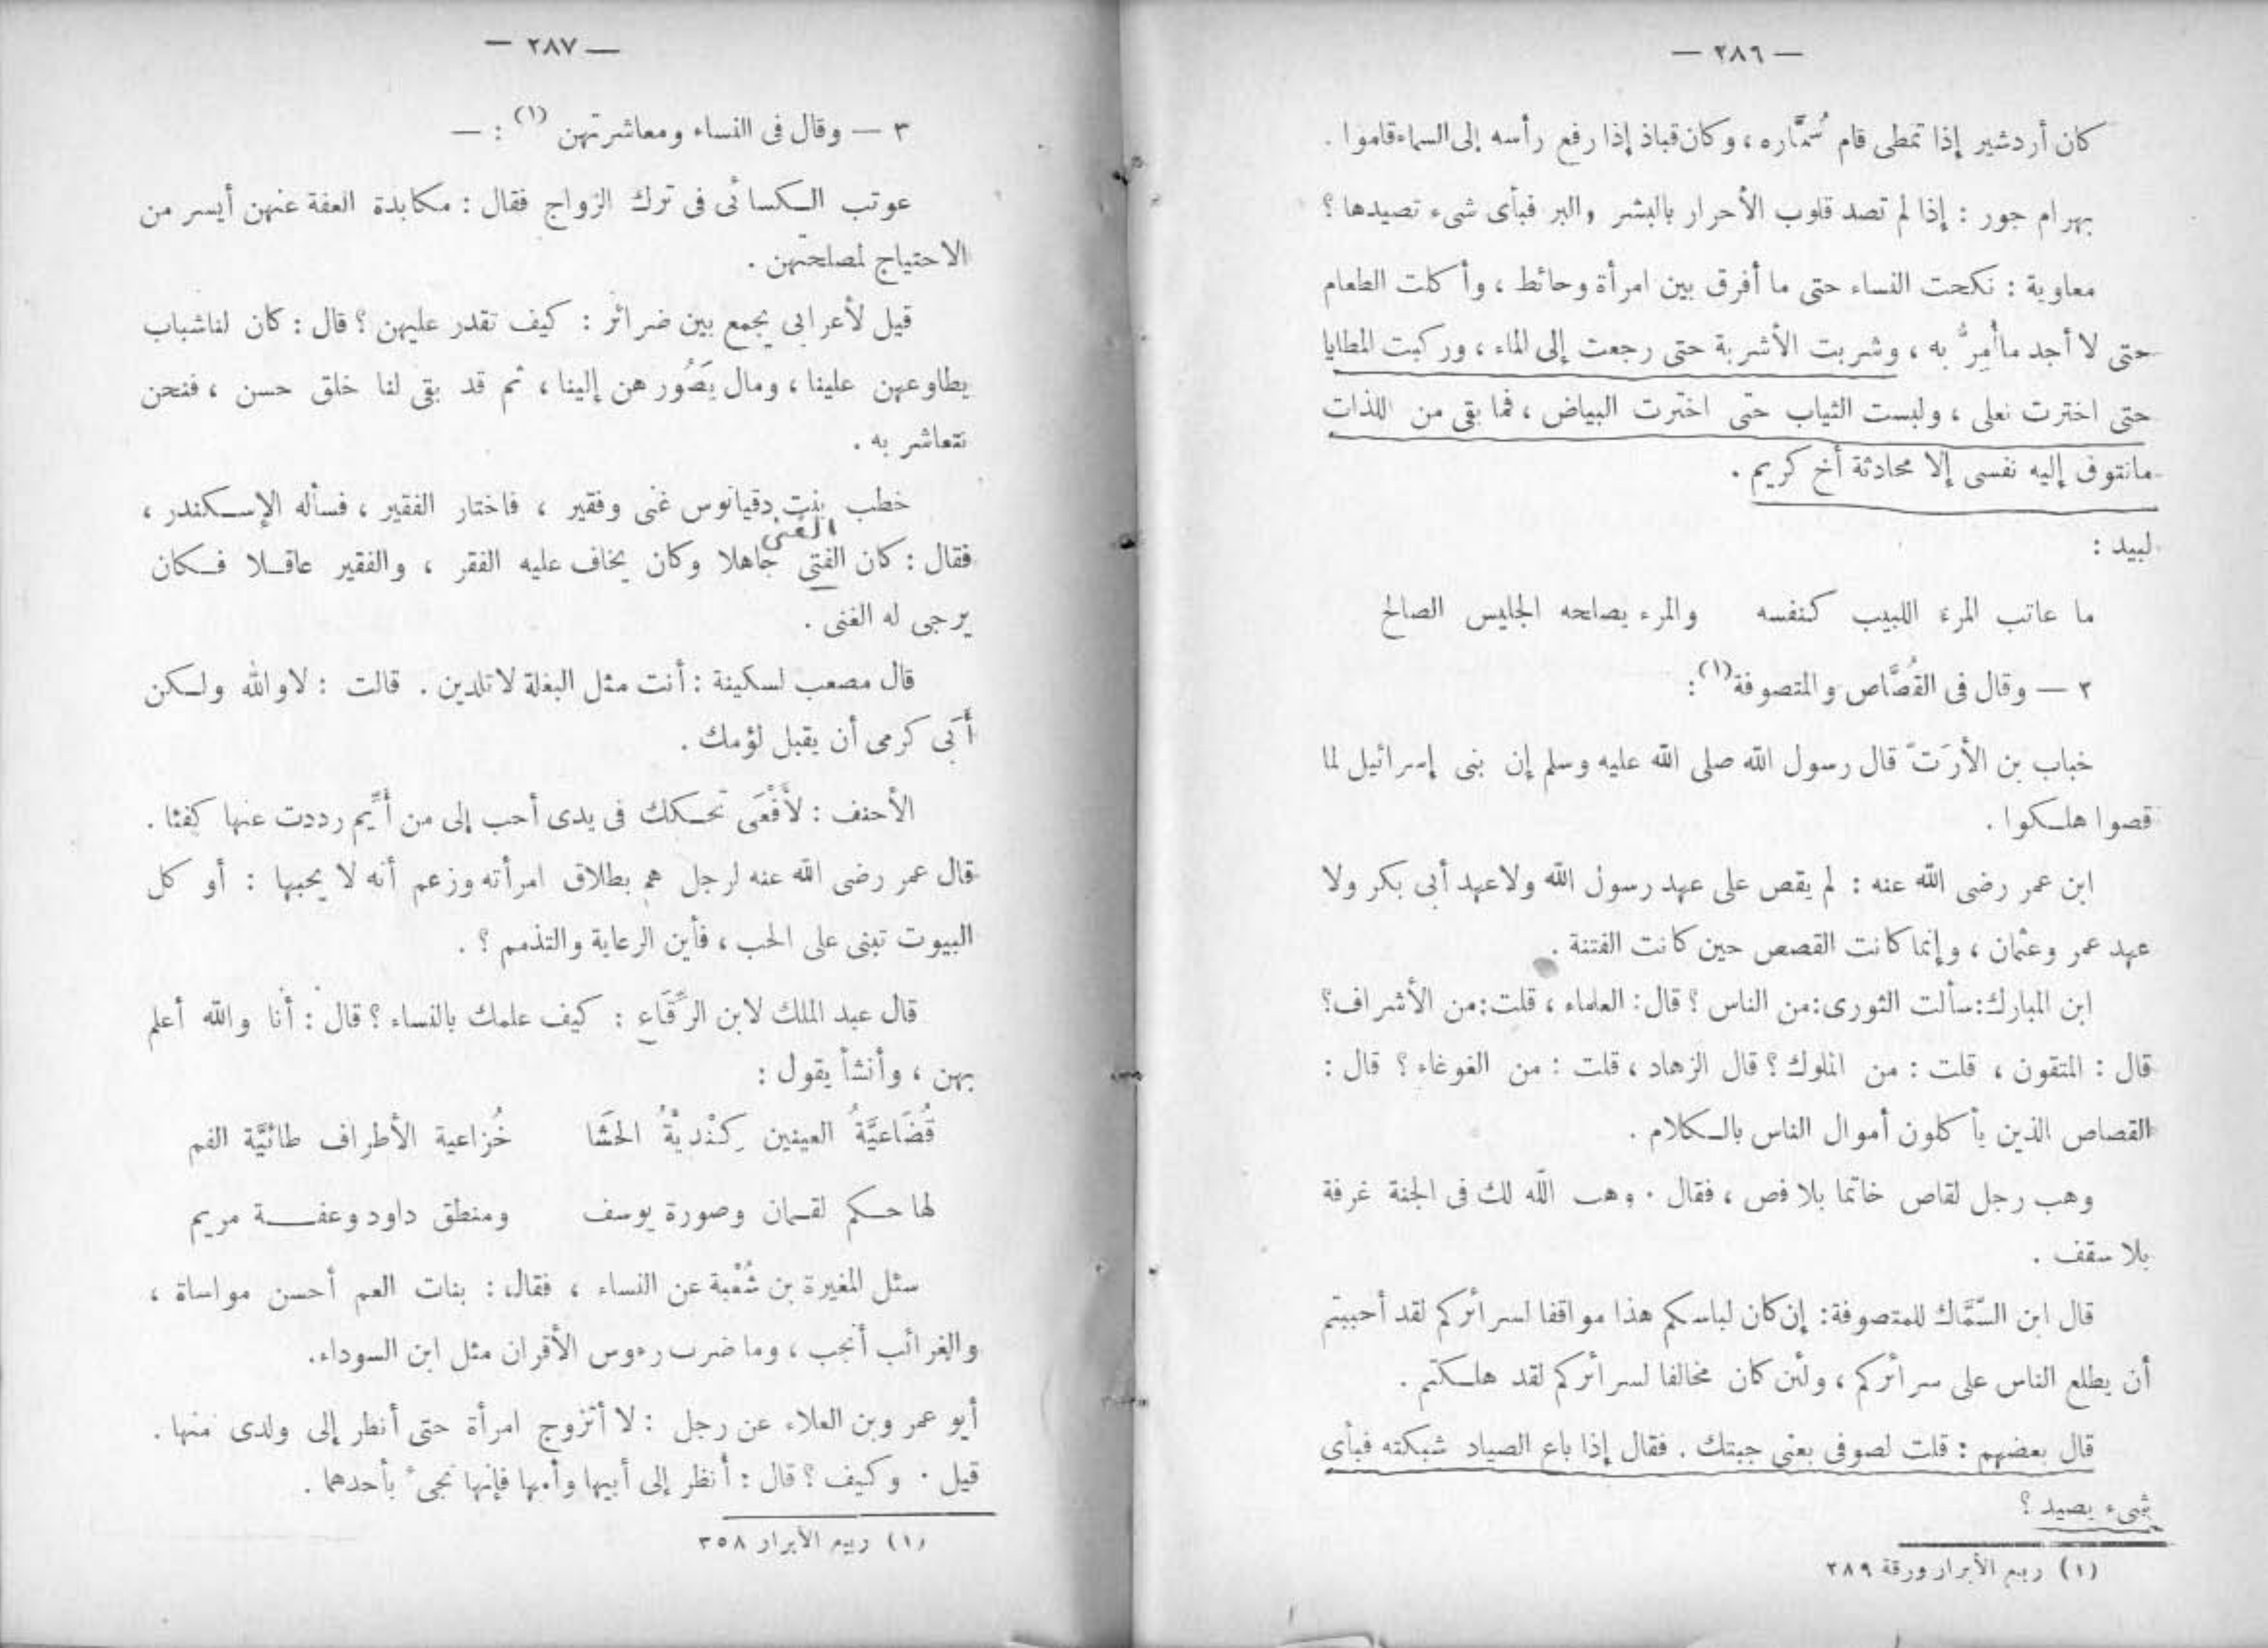 — ٢٨٦ —
كان أردشير إذا تمطى قام سُمَّاره ، وكان قباذ إذا رفع رأسه إلى السماء قاموا .
بهرام جور : إذا لم تصد قلوب الأحرار بالبشر والبر فبأى شىء تصيدها ؟
معاوية : نكحت النساء حتى ما أفرق بين امرأة وحائط ، وأكلت الطعام
حتى لا أجد ماأُمِرُّ به ، وشربت الأشربة حتى رجعت إلى الماء ، وركبت المطايا
حتى اخترت نعلى ، ولبست الثياب حتى اخترت البياض ، فما بقى من اللذات
ماتتوق إليه نفسى إلا محادثة أخ كريم .
لبيد :
ما عاتب المرء اللبيب كنفسه والمرء يصلحه الجليس الصالح
٢ — وقال فى القُصَّاص والمتصوفة (١) :
خباب بن الأرَتّ قال رسول الله صلى الله عليه وسلم إن بنى إسرائيل لما
قصوا هلكوا .
ابن عمر رضى الله عنه : لم يقص على عهد رسول الله ولاعهد أبى بكر ولا
عهد عمر وعثمان ، وإنما كانت القصص حين كانت الفتنة .
ابن المبارك : سألت الثورى : من الناس ؟ قال : العلماء ، قلت : من الأشراف ؟
قال : المتقون ، قلت : من الملوك ؟ قال الزهاد ، قلت : من الغوغاء ؟ قال :
القصاص الذين يأكلون أموال الناس بالكلام .
وهب رجل لقاص خاتما بلا فص ، فقال . وهب الله لك فى الجنة غرفة
بلا سقف .
قال ابن السَّمَّاك للمتصوفة : إن كان لباسكم هذا موافقا لسرائركم لقد أحببتم
أن يطلع الناس على سرائركم ، ولئن كان مخالفا لسرائركم لقد هلكتم .
قال بعضهم : قلت لصوفى بعنى جبتك . فقال إذا باع الصياد شبكته فبأى
شىء يصيد ؟
(١) ربيع الأبرار ورقة ٢٨٩
— ٢٨٧ —
٣ — وقال فى النساء ومعاشرتهن (١) : —
عوتب الكسائى فى ترك الزواج فقال : مكابدة العفة عنهن أيسر من
الاحتياج لمصلحتهن .
قيل لأعرابى يجمع بين ضرائر : كيف تقدر عليهن ؟ قال : كان لناشباب
يطاوعهن علينا ، ومال يَصُور هن إلينا ، ثم قد بقى لنا خلق حسن ، فنحن
نتعاشر به .
خطب بنت دقيانوس غنى وفقير ، فاختار الفقير ، فسأله الإسكندر ،
الغنى
فقال : كان الفتى جاهلا وكان يخاف عليه الفقر ، والفقير عاقلا فكان
يرجى له الغنى .
قال مصعب لسكينة : أنت مثل البغلة لاتلدين . قالت : لاوالله ولكن
أَبَى كرمى أن يقبل لؤمك .
الأحنف : لأَفْعَى تحكك فى يدى أحب إلى من أَيِّم رددت عنها كفئا .
قال عمر رضى الله عنه لرجل هم بطلاق امرأته وزعم أنه لا يحبها : أو كل
البيوت تبنى على الحب ، فأين الرعاية والتذمم ؟ .
قال عبد الملك لابن الرِّقَاع : كيف علمك بالنساء ؟ قال : أنا والله أعلم
بهن ، وأنشأ يقول :
قُضَاعيَّةُ العينين كِنْديةُ الحَشَا خُزاعية الأطراف طائيَّة الفم
لها حكم لقمان وصورة يوسف ومنطق داود وعفة مريم
سئل المغيرة بن شُعْبة عن النساء ، فقال : بنات العم أحسن مواساة ،
والغرائب أنجب ، وما ضرب رءوس الأقران مثل ابن السوداء.
أبو عمر وبن العلاء عن رجل : لا أتزوج امرأة حتى أنظر إلى ولدى منها .
قيل . وكيف ؟ قال : أنظر إلى أبيها وأمها فإنها تجىء بأحدهما .
(١) ربيع الأبرار ٣٥٨